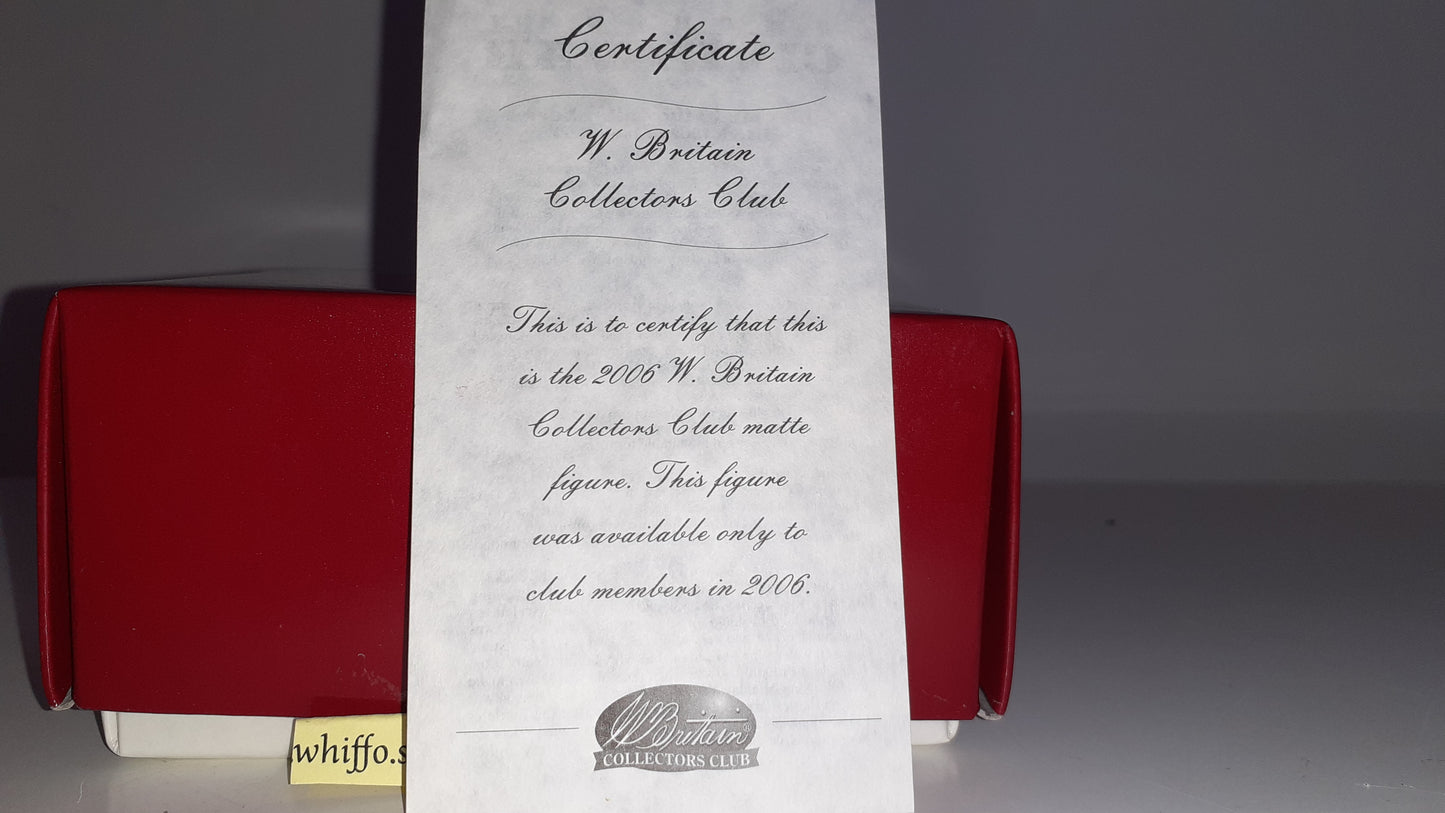 Certificate
W. Britain
Collectors Club
This is to certify that this
is the 2006 W. Britain
Collectors Club matte
figure. This figure
was available only to
club members in 2006.
W Britain®
COLLECTORS CLUB
whiffo.s